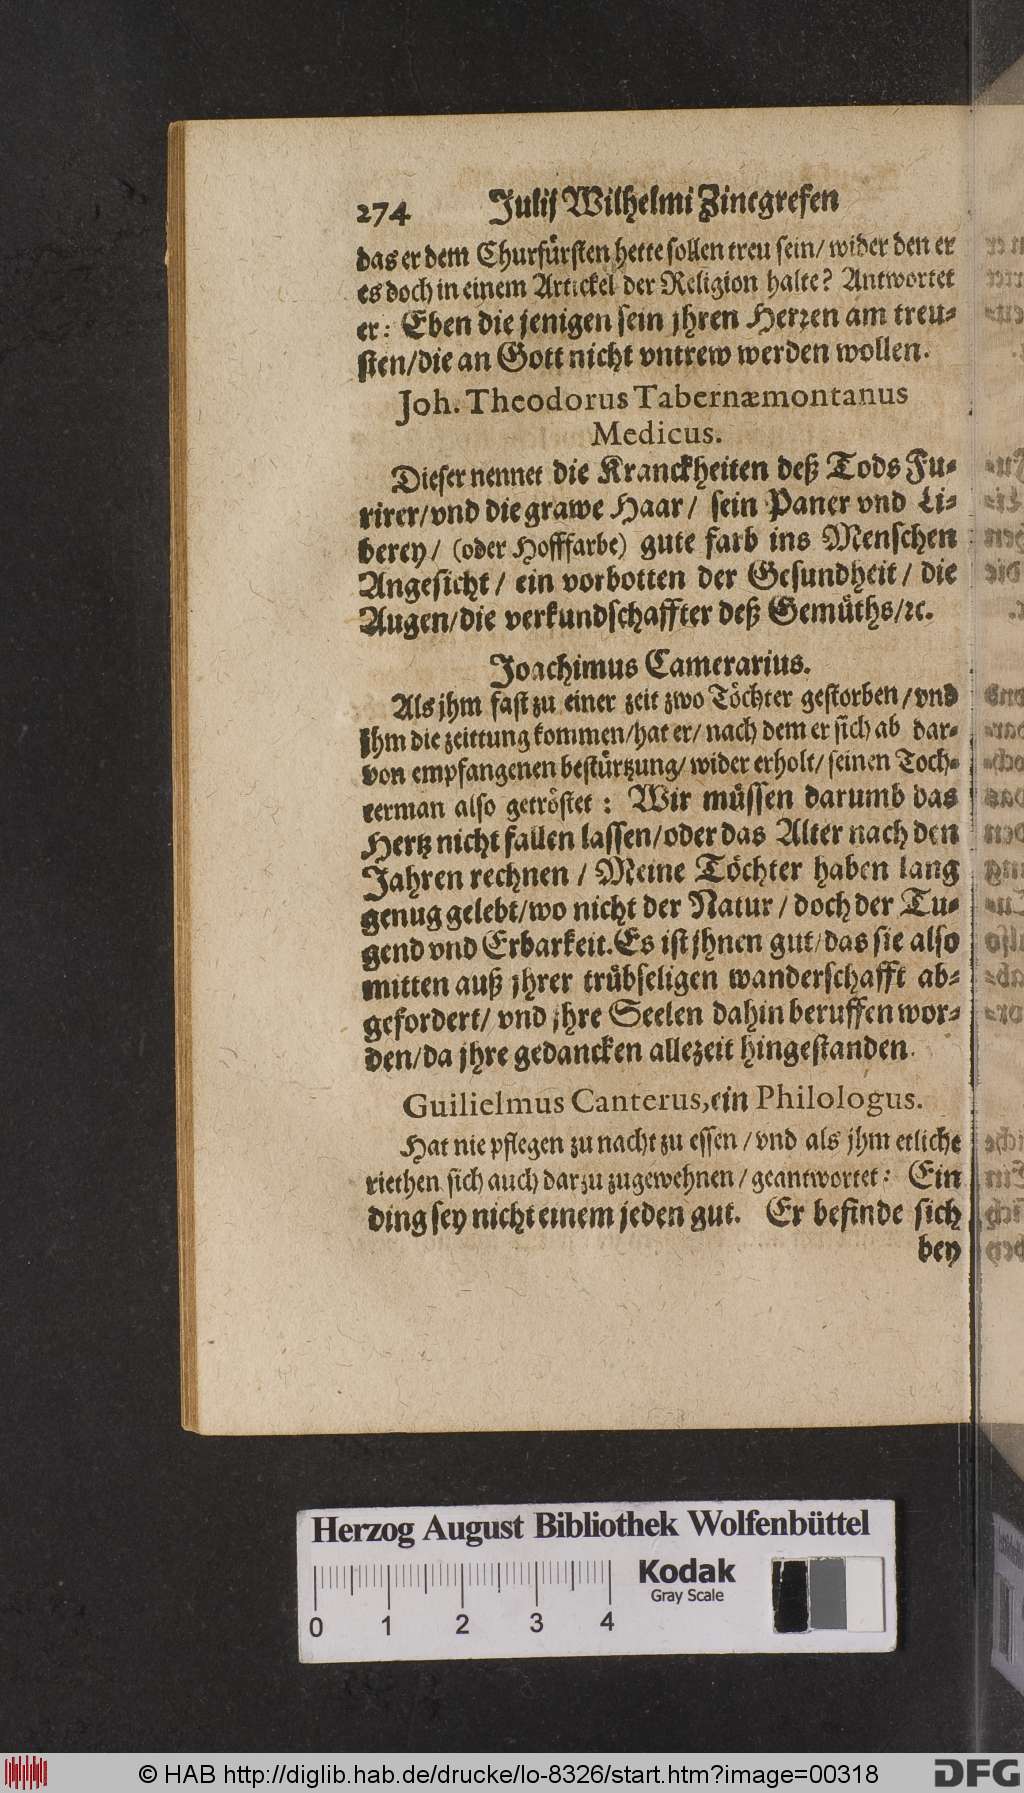 274 Julij Wilhelmi Zincgrefen
das er dem Churfürsten hette sollen treu sein/ wider den er
es doch in einem Artickel der Religion halte? Antwortet
er: Eben die jenigen sein jhren Herren am treu-
sten/die an Gott nicht vntrew werden wollen.
Joh. Theodorus Tabernæmontanus
Medicus.
Dieser nennet die Kranckheiten deß Tods Fu-
rirer/vnd die grawe Haar/ sein Paner vnd Li-
berey/ (oder Hofffarbe) gute farb ins Menschen
Angesicht/ ein vorbotten der Gesundheit/ die
Augen/die verkundschaffter deß Gemüths/ꝛc.
Joachimus Camerarius.
Als jhm fast zu einer zeit zwo Töchter gestorben/vnd
jhm die zeittung kommen/hat er/ nach dem er sich ab dar-
von empfangenen bestürtzung/ wider erholt/ seinen Toch-
terman also getröstet: Wir müssen darumb das
Hertz nicht fallen lassen/oder das Alter nach den
Jahren rechnen/ Meine Töchter haben lang
genug gelebt/wo nicht der Natur/ doch der Tu-
gend vnd Erbarkeit. Es ist jhnen gut/das sie also
mitten auß jhrer trübseligen wanderschafft ab-
gefordert/ vnd jhre Seelen dahin beruffen wor-
den/da jhre gedancken allezeit hingestanden.
Guilielmus Canterus, ein Philologus.
Hat nie pflegen zu nacht zu essen/vnd als jhm etliche
riethen sich auch darzu zugewehnen/geantwortet: Ein
ding sey nicht einem jeden gut. Er befinde sich
bey
Herzog August Bibliothek Wolfenbüttel
Kodak
Gray Scale
0 1 2 3 4
© HAB http://diglib.hab.de/drucke/lo-8326/start.htm?image=00318
DFG